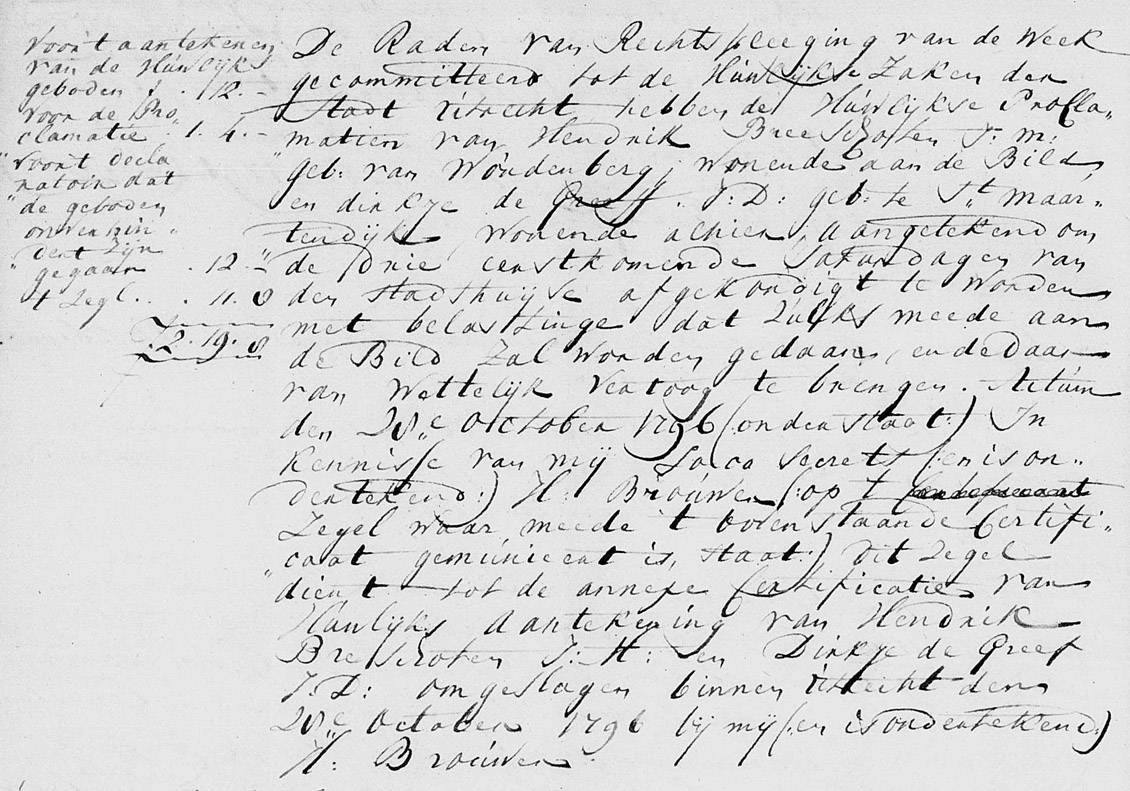 voor 't aantekenen
van de Huwlijks
geboden f . 12. -
voor de Pro,
clamatie 1. 4. -
voor 't decla
ratoir dat
de geboden
onverhin,
dert zijn
gegaan . 12. -
4 Zegl. . . 11. 8
f 2. 19. 8
De Raden van Rechtspleeging van de Week
gecommitteerd tot de Huwlijkse Zaken der
Stadt Utrecht hebben de Huwlijkse Procla,,
matien van Hendrik Breeschoten J: m:
geb: van Woudenberg, wonende aan de Bild
en dirkje de Greeff. J: D: geb: te St. maar,,
tendijk wonende achter, aangetekend om
de drie eerstkomende Saturdagen van
den Stadthuijse afgekondigt te worden
met belastinge dat zulks meede aan
de Bild zal worden gedaan, en de daar
van Wettelijk Vertoog te brengen. Actum
den 28e. October 1796 (onderstaat:) In
kennisse van mij Loco Secrets (:en is on,,
dertekend:) H: Brouwer (:op 't
Zegel waar meede 't bovenstaande Certifi,,
caat gemunieert is, staat:) Dit Zegel
dient tot de annexe Certificatie van
Huwlijks Aantekening van Hendrik
Breeschoten J: M: en Dirkje de Greef
J: D: omgeslagen binnen Utrecht den
28e October 1796 bij mij (:en is ondertekend:)
H: Brouwer.